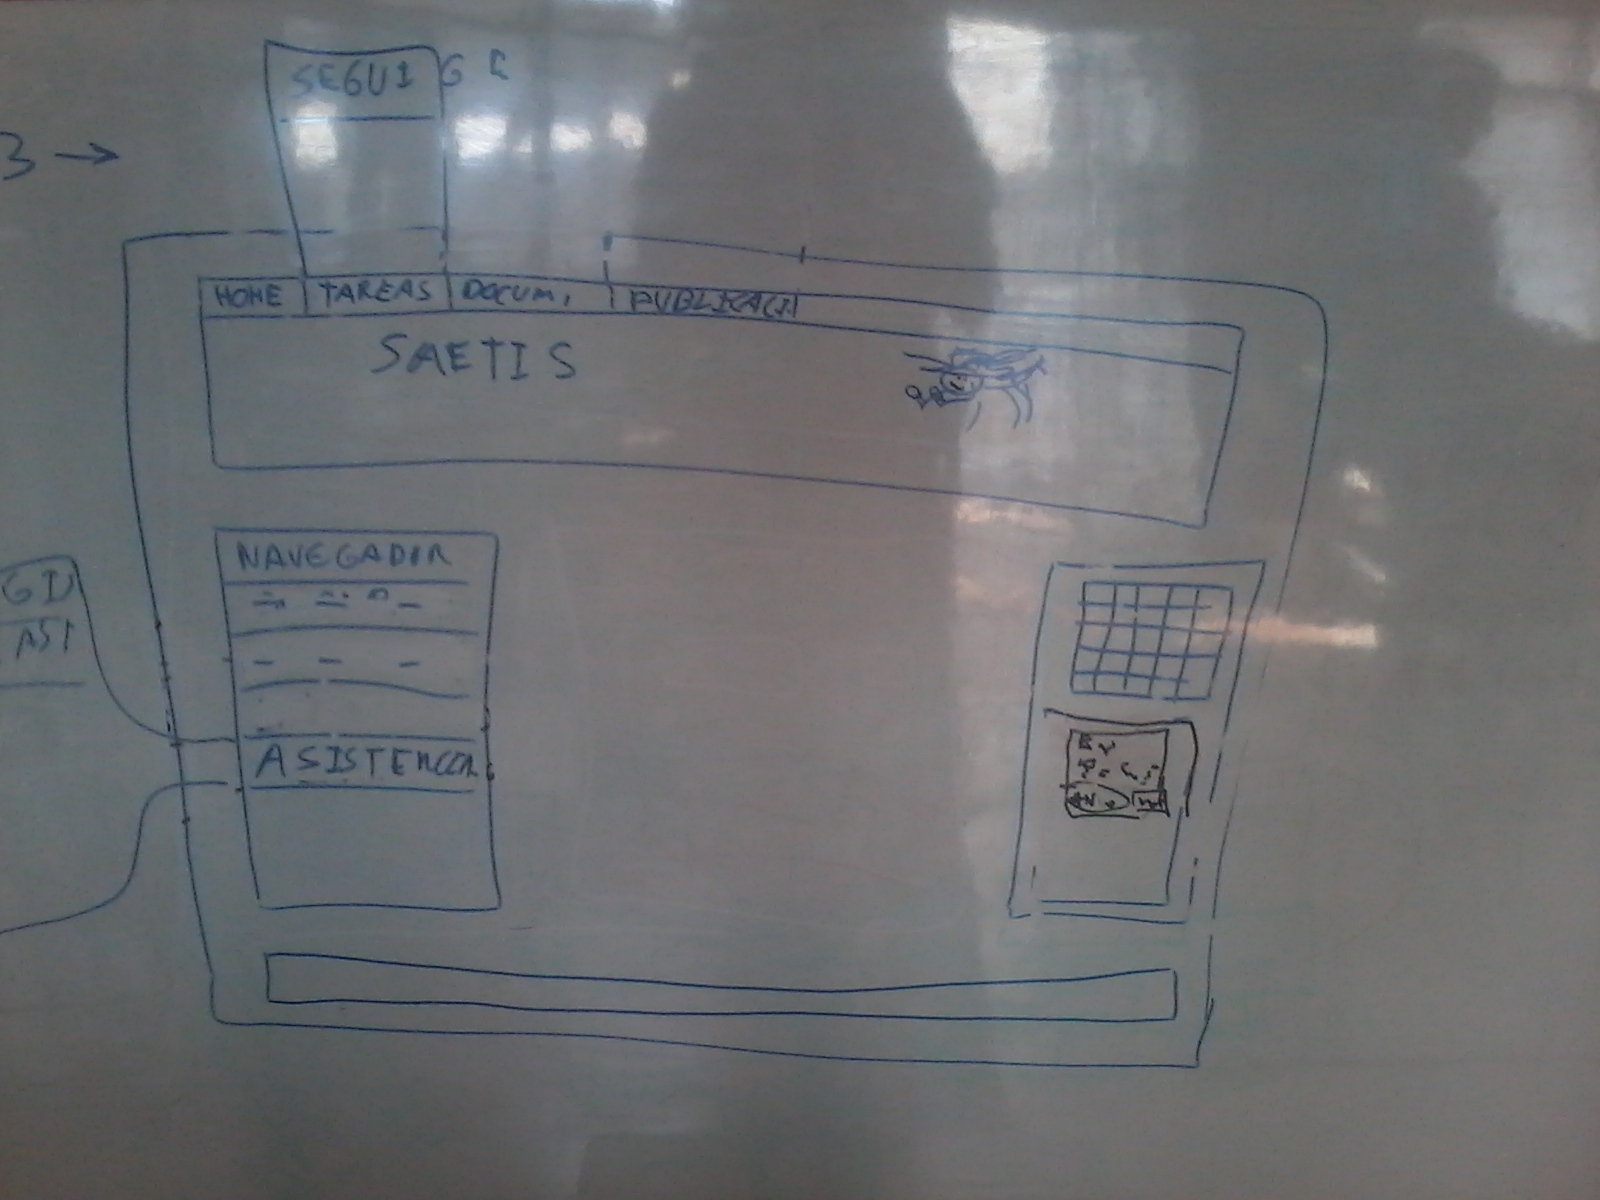 SEGUI G R
3 →
HOME TAREAS DOCUM, PUBLICACI
SAETIS
NAVEGADOR
GD
ASI
ASISTENCIA